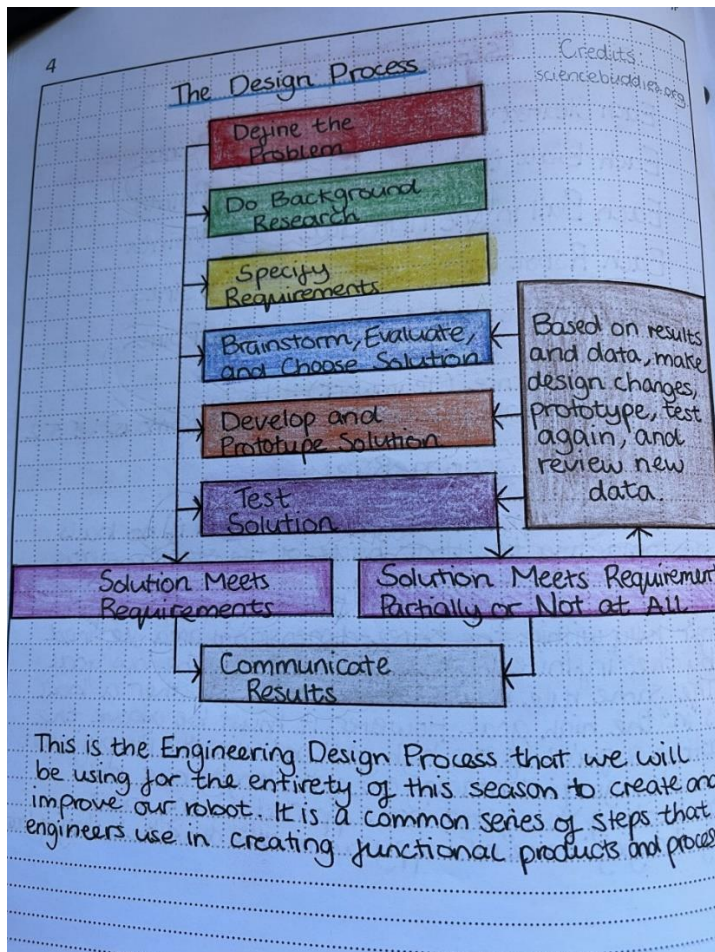 4
Credits
sciencebuddies.org
The Design Process
Define the
Problem
Do Background
Research
Specify
Requirements
Brainstorm, Evaluate,
and Choose Solution
Develop and
Prototype Solution
Test
Solution
Based on results
and data, make
design changes,
prototype, test
again, and
review new
data.
Solution Meets
Requirements
Solution Meets Requirement
Partially or Not at All
Communicate
Results
This is the Engineering Design Process that we will
be using for the entirety of this season to create and
improve our robot. It is a common series of steps that
engineers use in creating functional products and process